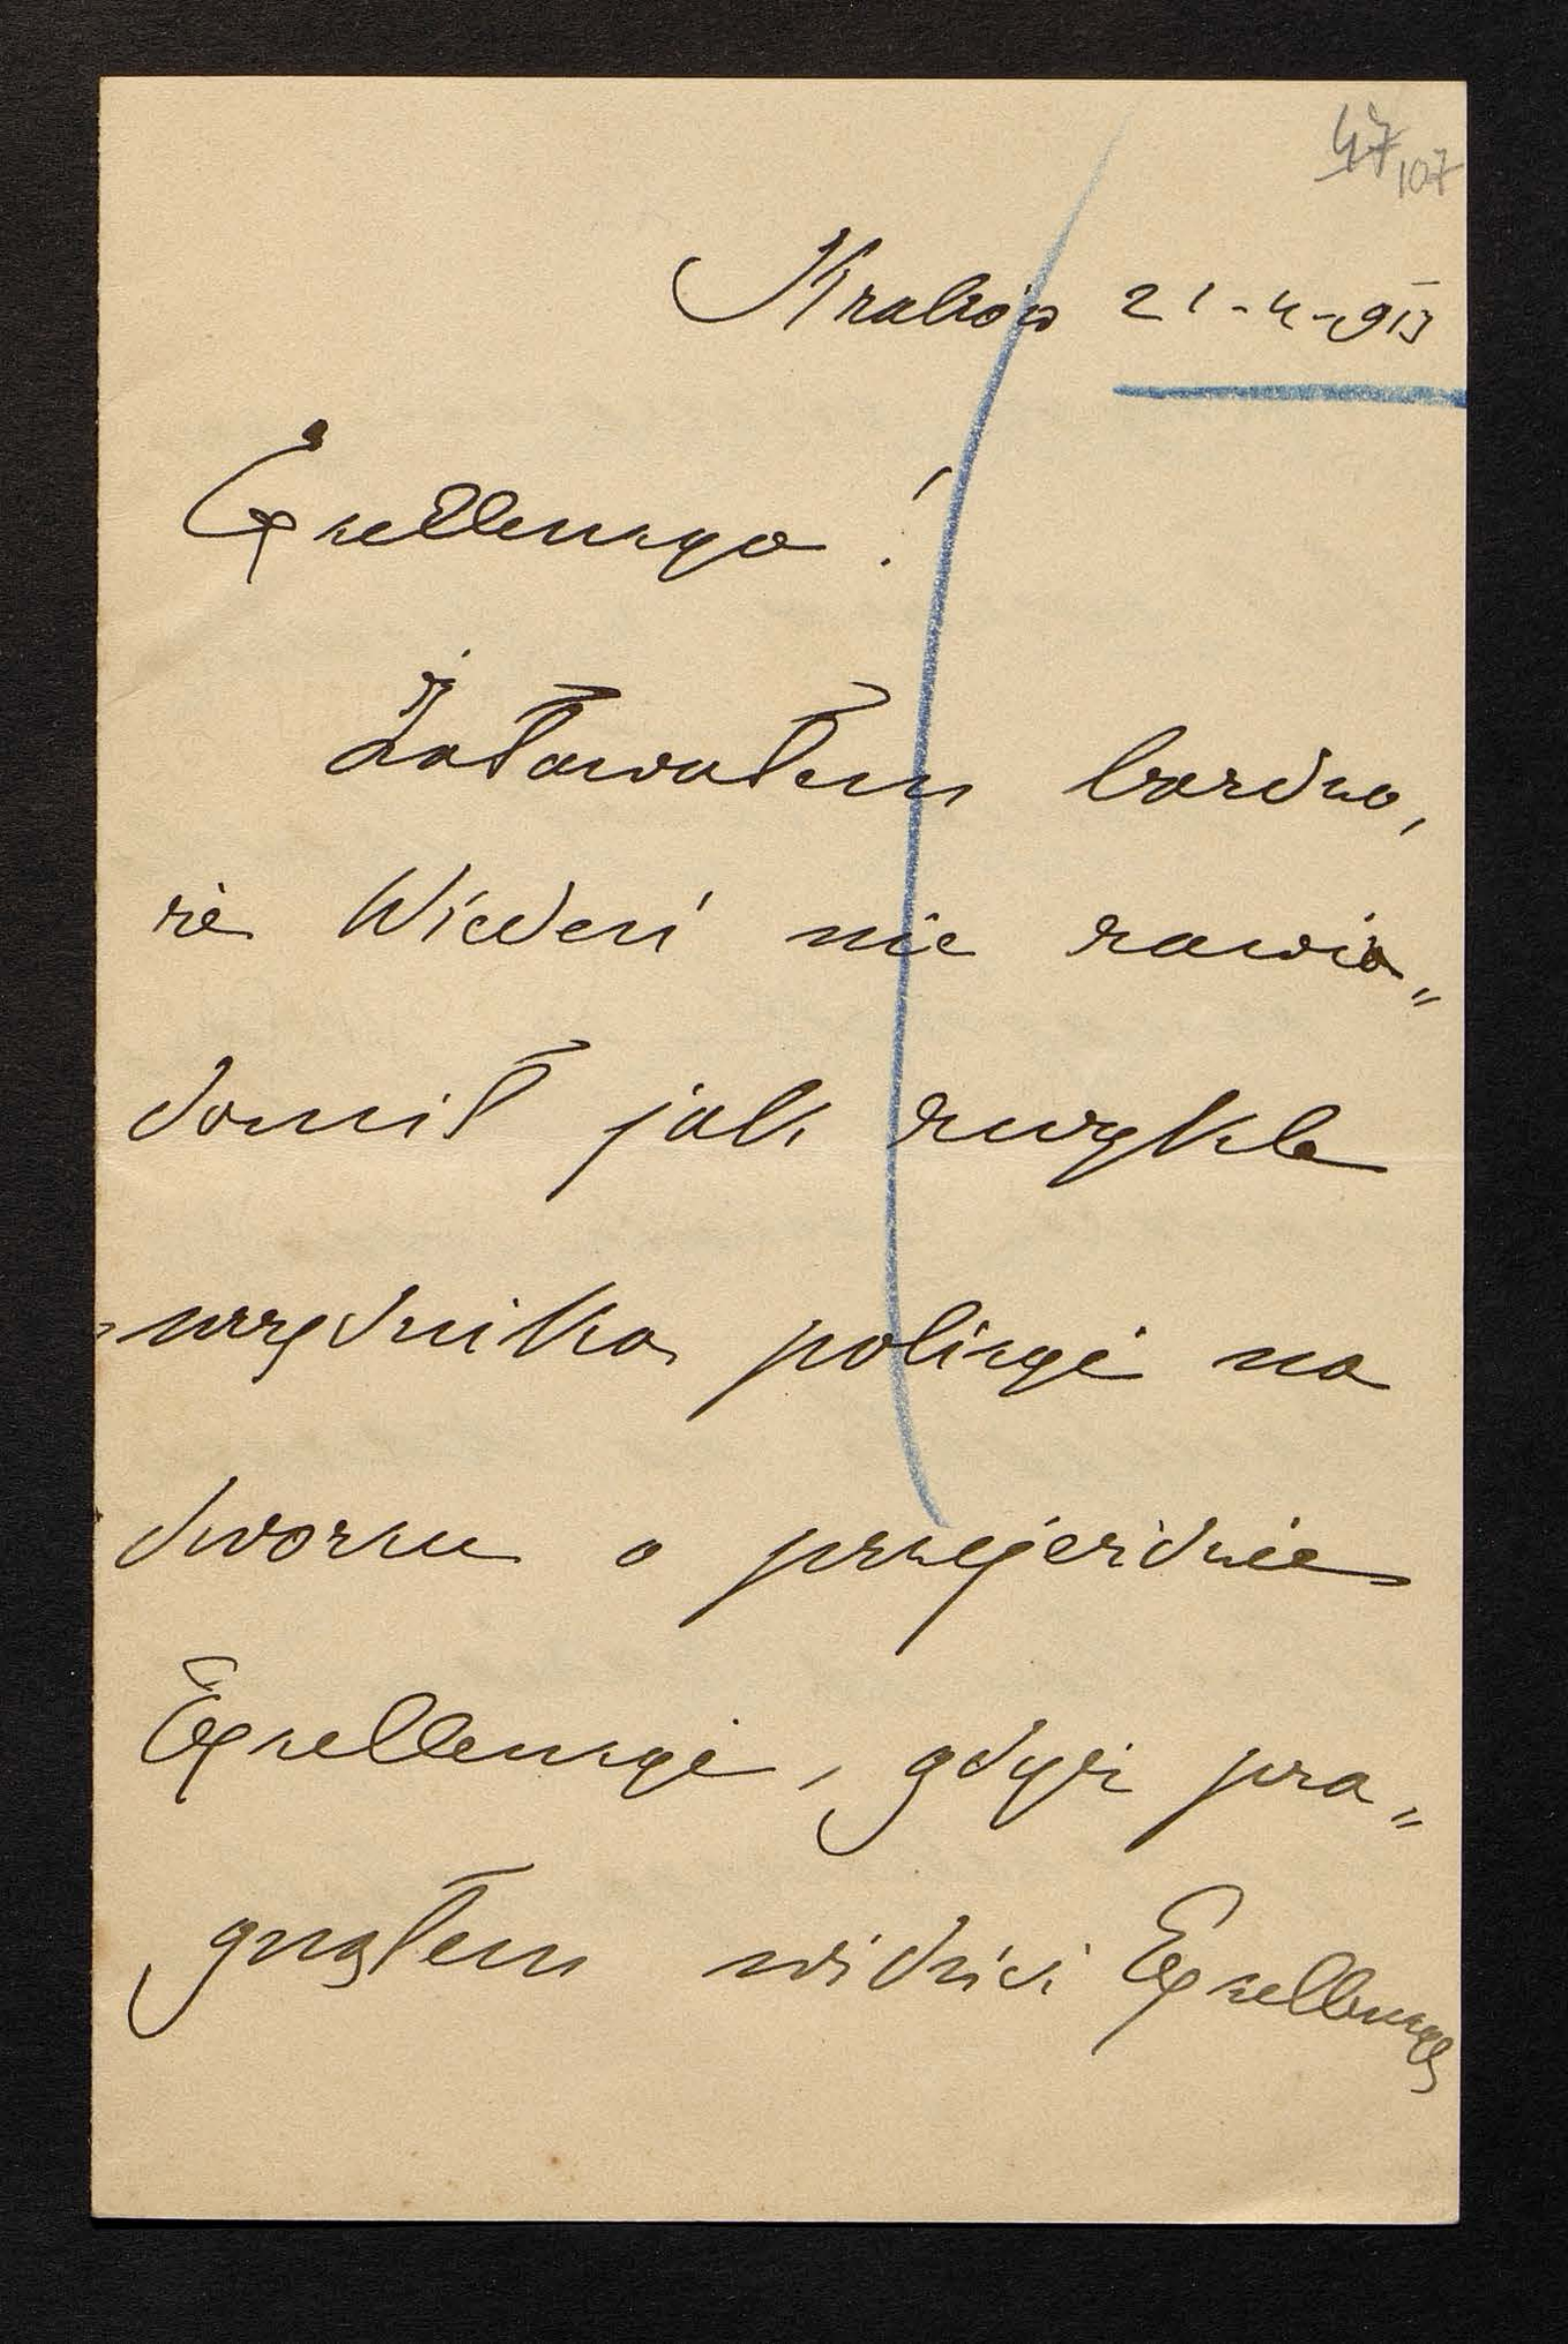 47 107
Kraków 21-4-913
Exzellencyo!
Żałowałem bardzo,
że Wiedeń nie zawia„
domił jak zwykle
urzędnika policyi na
dworzu o przejeździe
Exzellencyi, gdyż pra„
gnąłem widzieć Exzellencyę